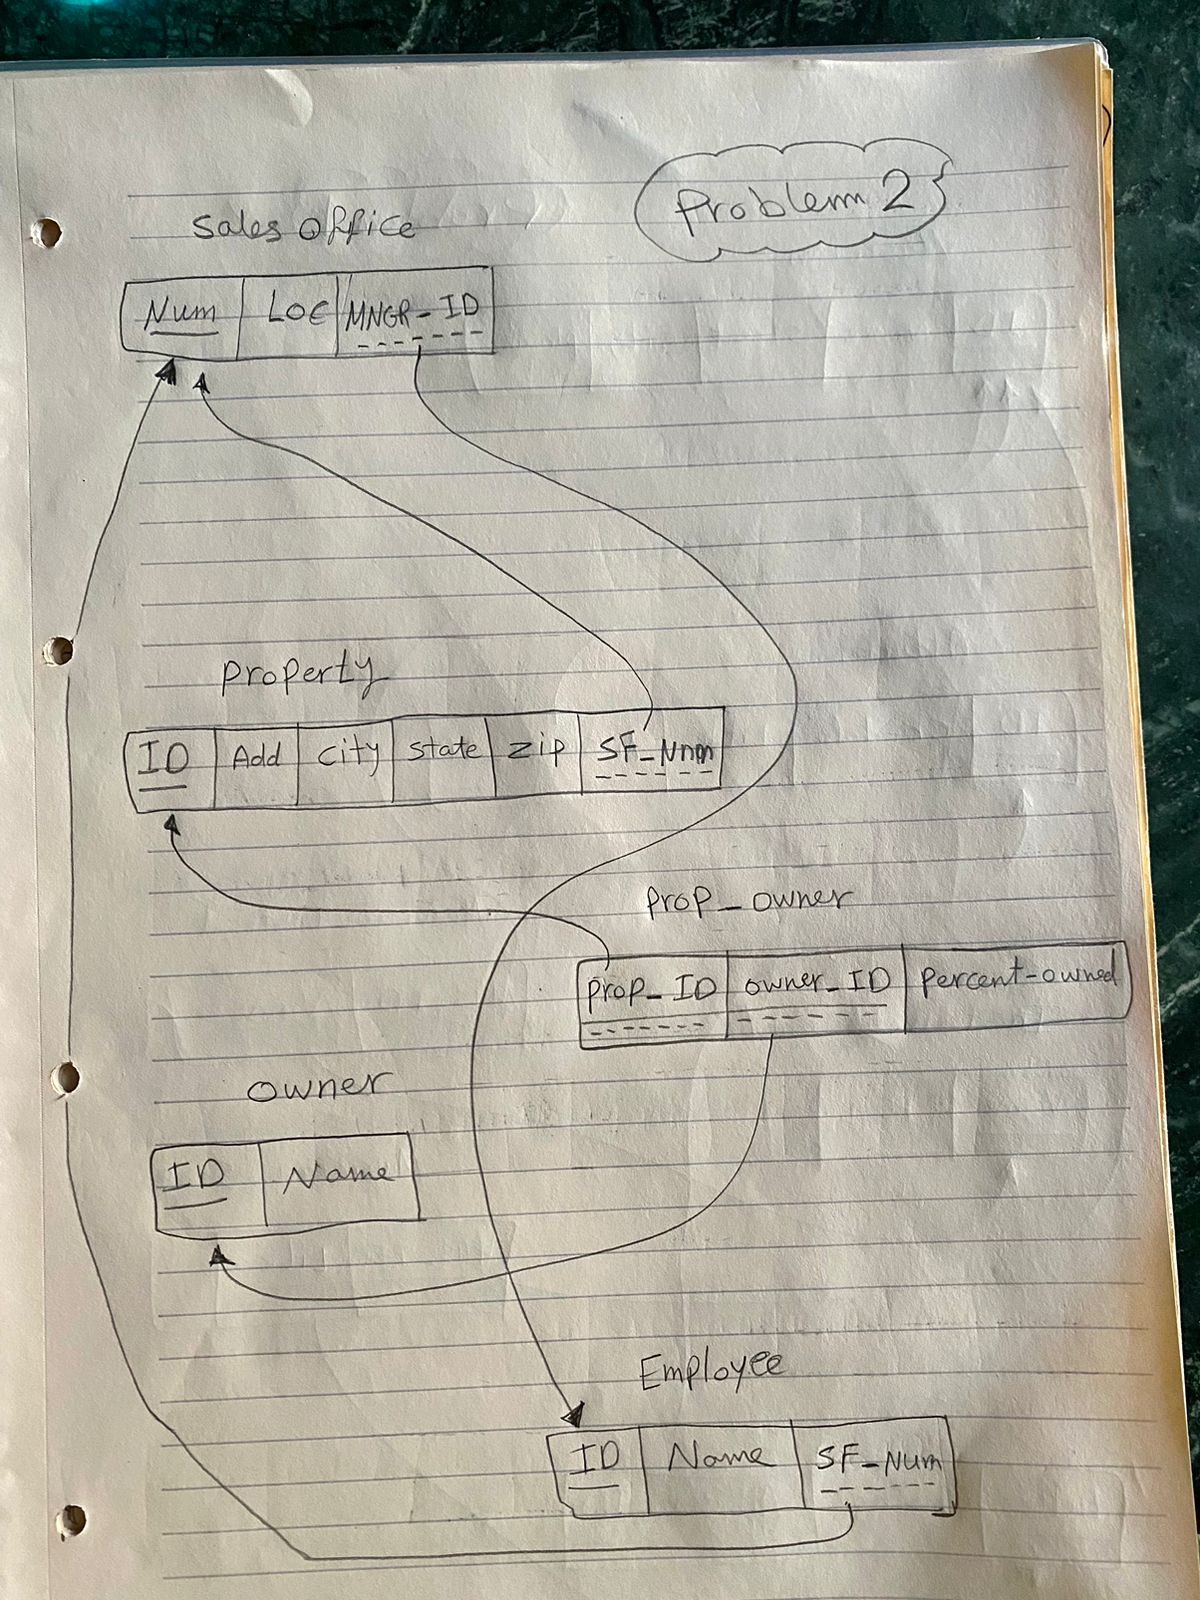 Problem 2
Sales office
Num Loc MNGR_ID
property
ID Add city state zip SF_Nnm
prop_owner
prop_ID owner_ID percent-owned
owner
ID Name
Employee
ID Name SF_Num